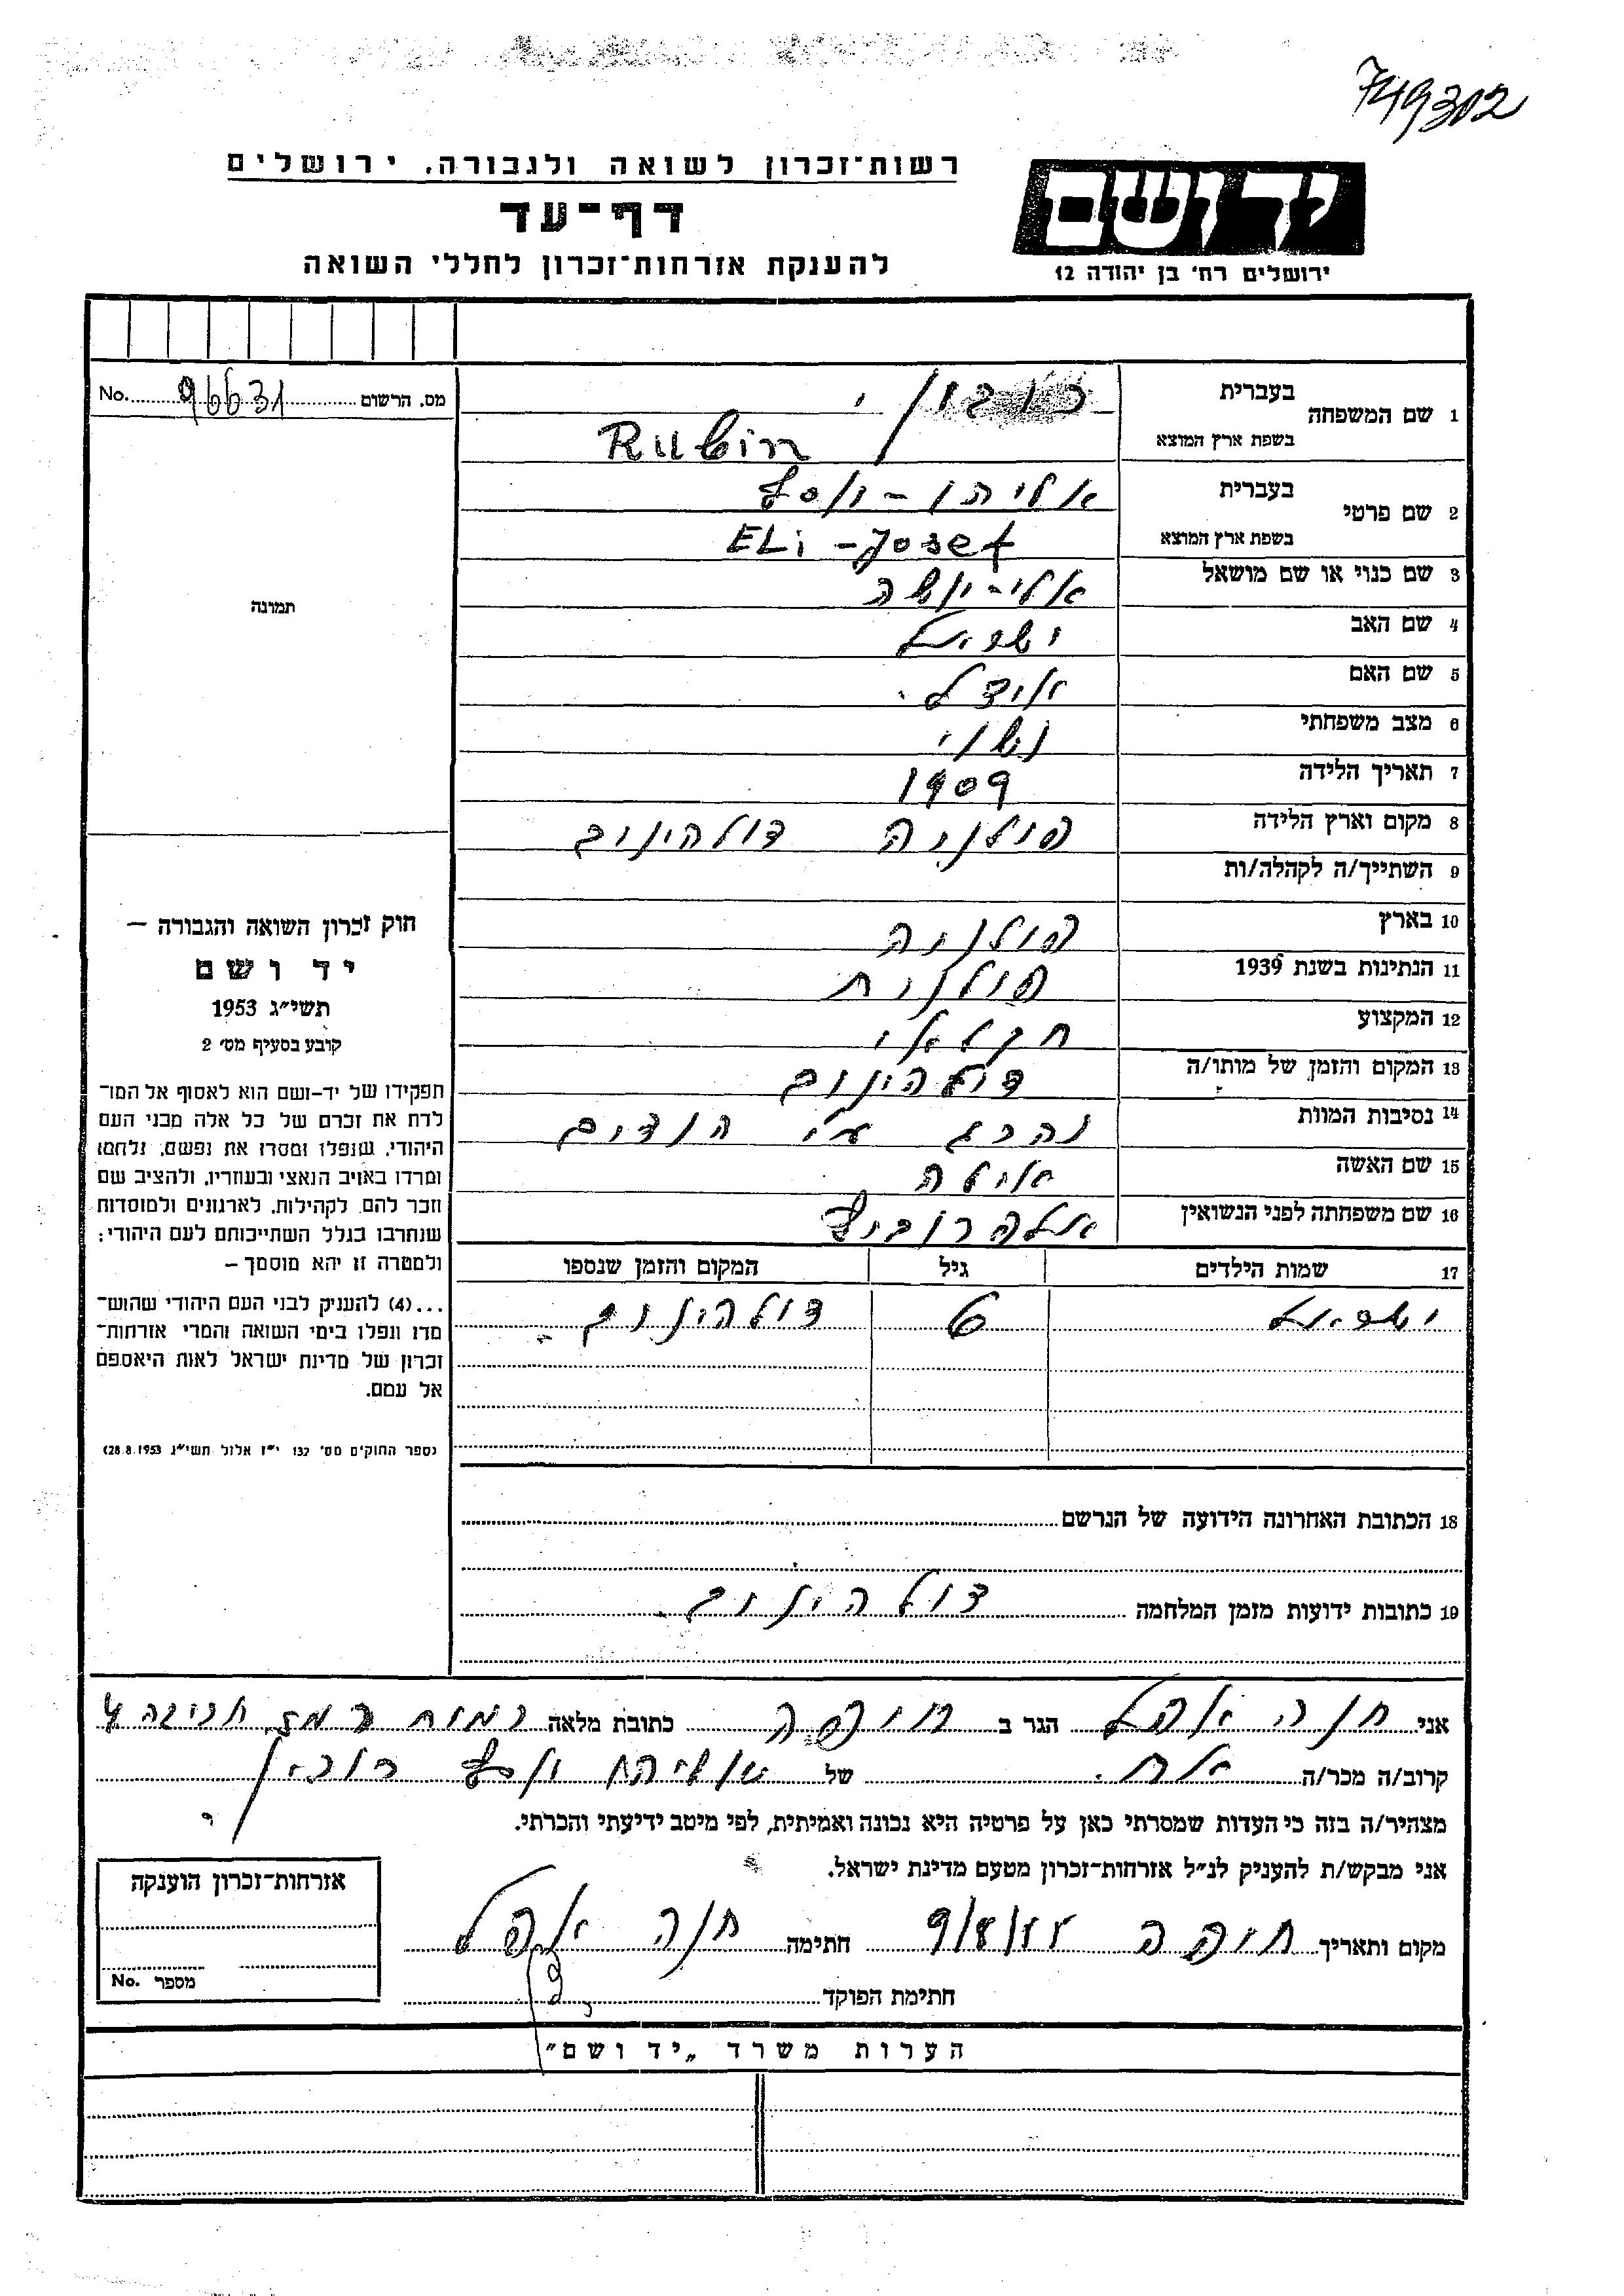 749302
רשות־זכרון לשואה ולגבורה, ירושלים
יד ושם
דף־עד
להענקת אזרחות־זכרון לחללי השואה
ירושלים רח' בן יהודה 12
מס. הרשום 96631 No.
1 שם המשפחה
בעברית רובין
בשפת ארץ המוצא Rubin
2 שם פרטי
בעברית אליהו - יוסף
בשפת ארץ המוצא ELi - Josef
3 שם כנוי או שם מושאל אלי-יושה
4 שם האב ישראל
5 שם האם איידל
6 מצב משפחתי נשוי
7 תאריך הלידה 1909
8 מקום וארץ הלידה פולניה דולהינוב
9 השתייך/ה לקהלה/ות
10 בארץ פולניה
11 הנתינות בשנת 1939 פולנית
12 המקצוע חקלאי
13 המקום והזמן של מותו/ה דולהינוב
14 נסיבות המוות נהרג ע"י
15 שם האשה
16 שם משפחתה לפני הנשואין
17 שמות הילדים גיל המקום והזמן שנספו
ישראל 6 דולהינוב
18 הכתובת האחרונה הידועה של הנרשם
19 כתובות ידועות מזמן המלחמה דולהינוב
תמונה
חוק זכרון השואה והגבורה –
יד ושם
תשי״ג 1953
קובע בסעיף מס' 2
תפקידו של יד-ושם הוא לאסוף אל המו־
לדת את זכרם של כל אלה מבני העם
היהודי, שנפלו ומסרו את נפשם, נלחמו
ומרדו באויב הנאצי ובעוזריו, ולהציב שם
וזכר להם, לקהילות, לארגונים ולמוסדות
שנחרבו בגלל השתייכותם לעם היהודי;
ולמטרה זו יהא מוסמך –
...(4) להעניק לבני העם היהודי שהוש־
מדו ונפלו בימי השואה והמרי אזרחות־
זכרון של מדינת ישראל לאות היאספם
אל עמם.
(ספר החוקים מס' 132 י״ז אלול תשי״ג 28.8.1953)
אני חנה אפל הגר ב חיפה כתובת מלאה רמות רמז
קרוב/ה מכר/ה אחות של אליהו יוסף רובין
מצהיר/ה בזה כי העדות שמסרתי כאן על פרטיה היא נכונה ואמיתית, לפי מיטב ידיעתי והכרתי.
אני מבקש/ת להעניק לנ״ל אזרחות־זכרון מטעם מדינת ישראל.
מקום ותאריך חיפה חתימה חנה אפל
חתימת הפוקד
אזרחות־זכרון הוענקה
מספר No.
הערות משרד „יד ושם״